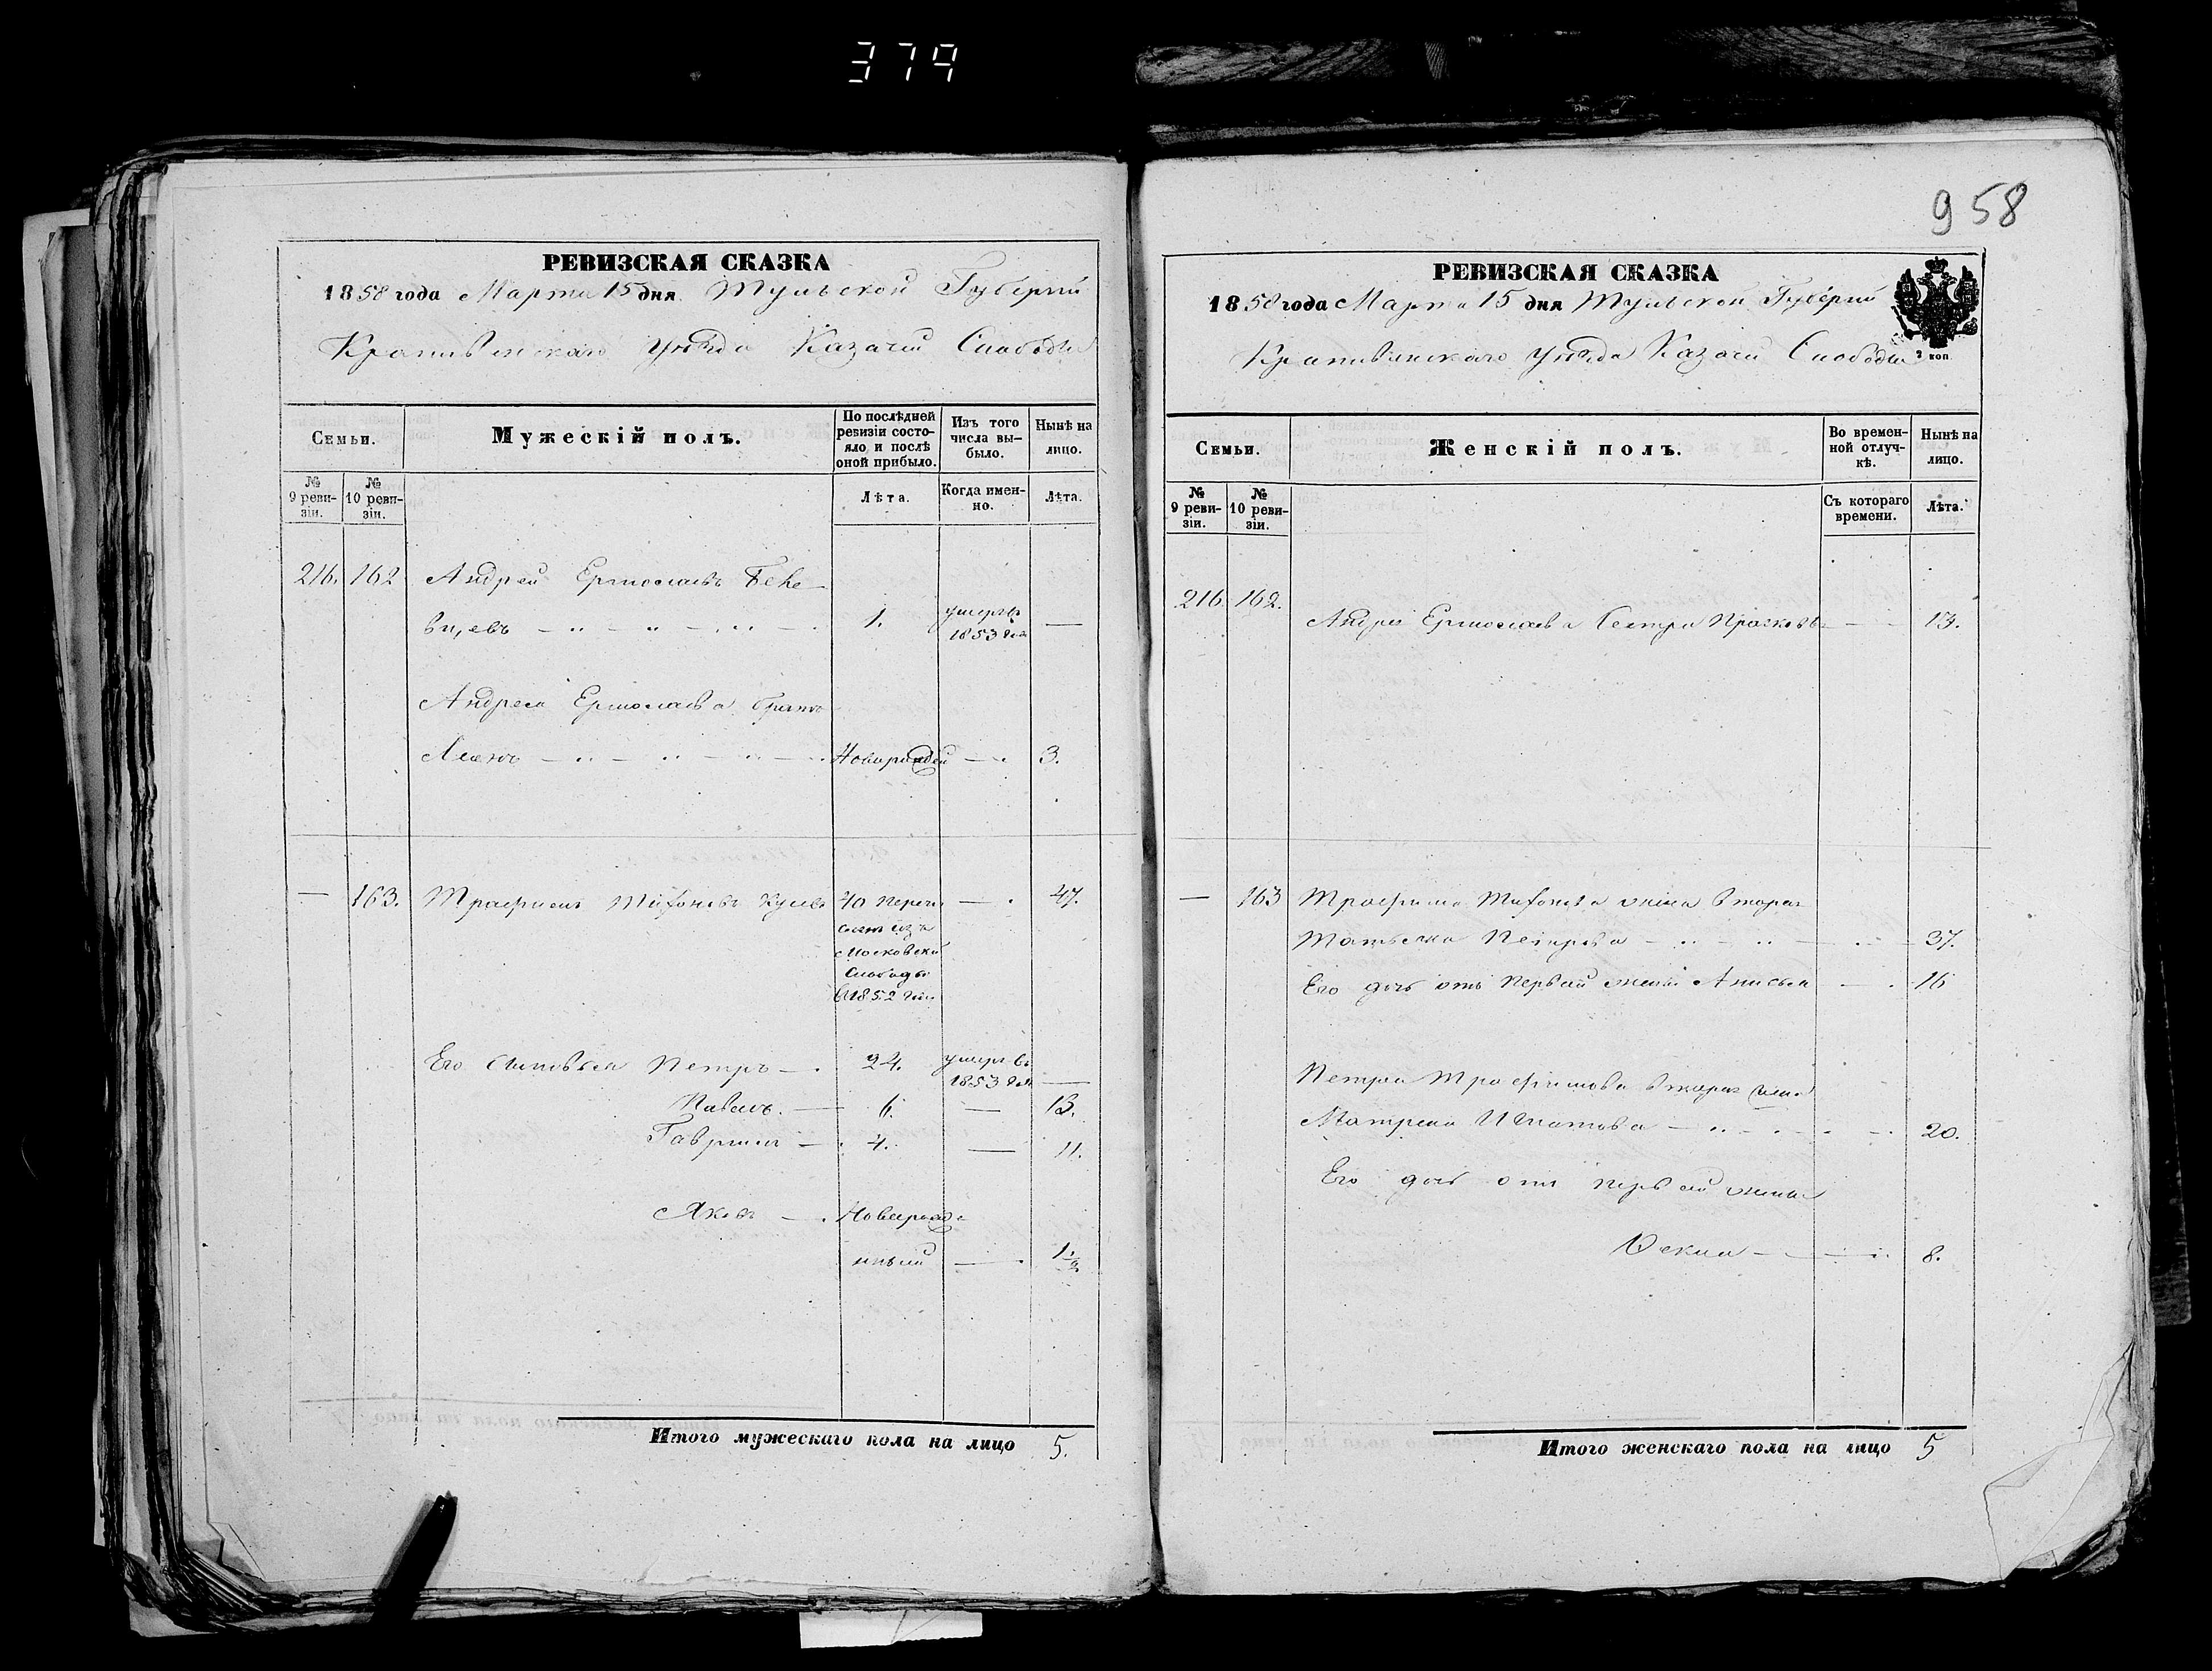 379
958
РЕВИЗСКАЯ СКАЗКА
1858 года Марта 15 дня Тульской Губерніи
Крапивенскаго Уѣзда Казачей Слободы
Семьи.
Мужескій полъ.
По послѣдней ревизіи состояло и послѣ оной прибыло.
Изъ того числа выбыло.
Нынѣ на лицо.
№ 9 ревизіи.
№ 10 ревизіи.
Лѣта.
Когда именно.
Лѣта.
216. 162 Андрей Ермолаевъ
вцевъ 1. умеръ въ 1853 —
Андрея Ермолаева братъ
Новорожден — 3.
— 163. Трофимъ 40 переч — 47.
слен изъ
Московской
Слободы
в 1852
Его сыновья Петръ — 24. умеръ въ 1853 —
Павелъ. — 6. — 13.
Гаврилъ — 4. — 11.
Яковъ — Новорожде
нный — 1 1/2
Итого мужескаго пола на лицо 5.
РЕВИЗСКАЯ СКАЗКА
1858 года Марта 15 дня Тульской Губерніи
Крапивенскаго Уѣзда Казачей Слободы
2 коп
Семьи.
Женскій полъ.
Во временной отлучкѣ.
Нынѣ на лицо.
№ 9 ревизіи.
№ 10 ревизіи.
Съ котораго времени.
Лѣта.
216. 162. Андрея Ермолаева сестра — 13.
— 163 Трофима жена вторая
Татьяна Петрова — 37.
Его дочь отъ первой жены Анисья — 16
Петра Трофимова вторая жена
Матрена Игнатова — 20.
Его дочь отъ первой жены
Ѳекла — 8.
Итого женскаго пола на лицо 5